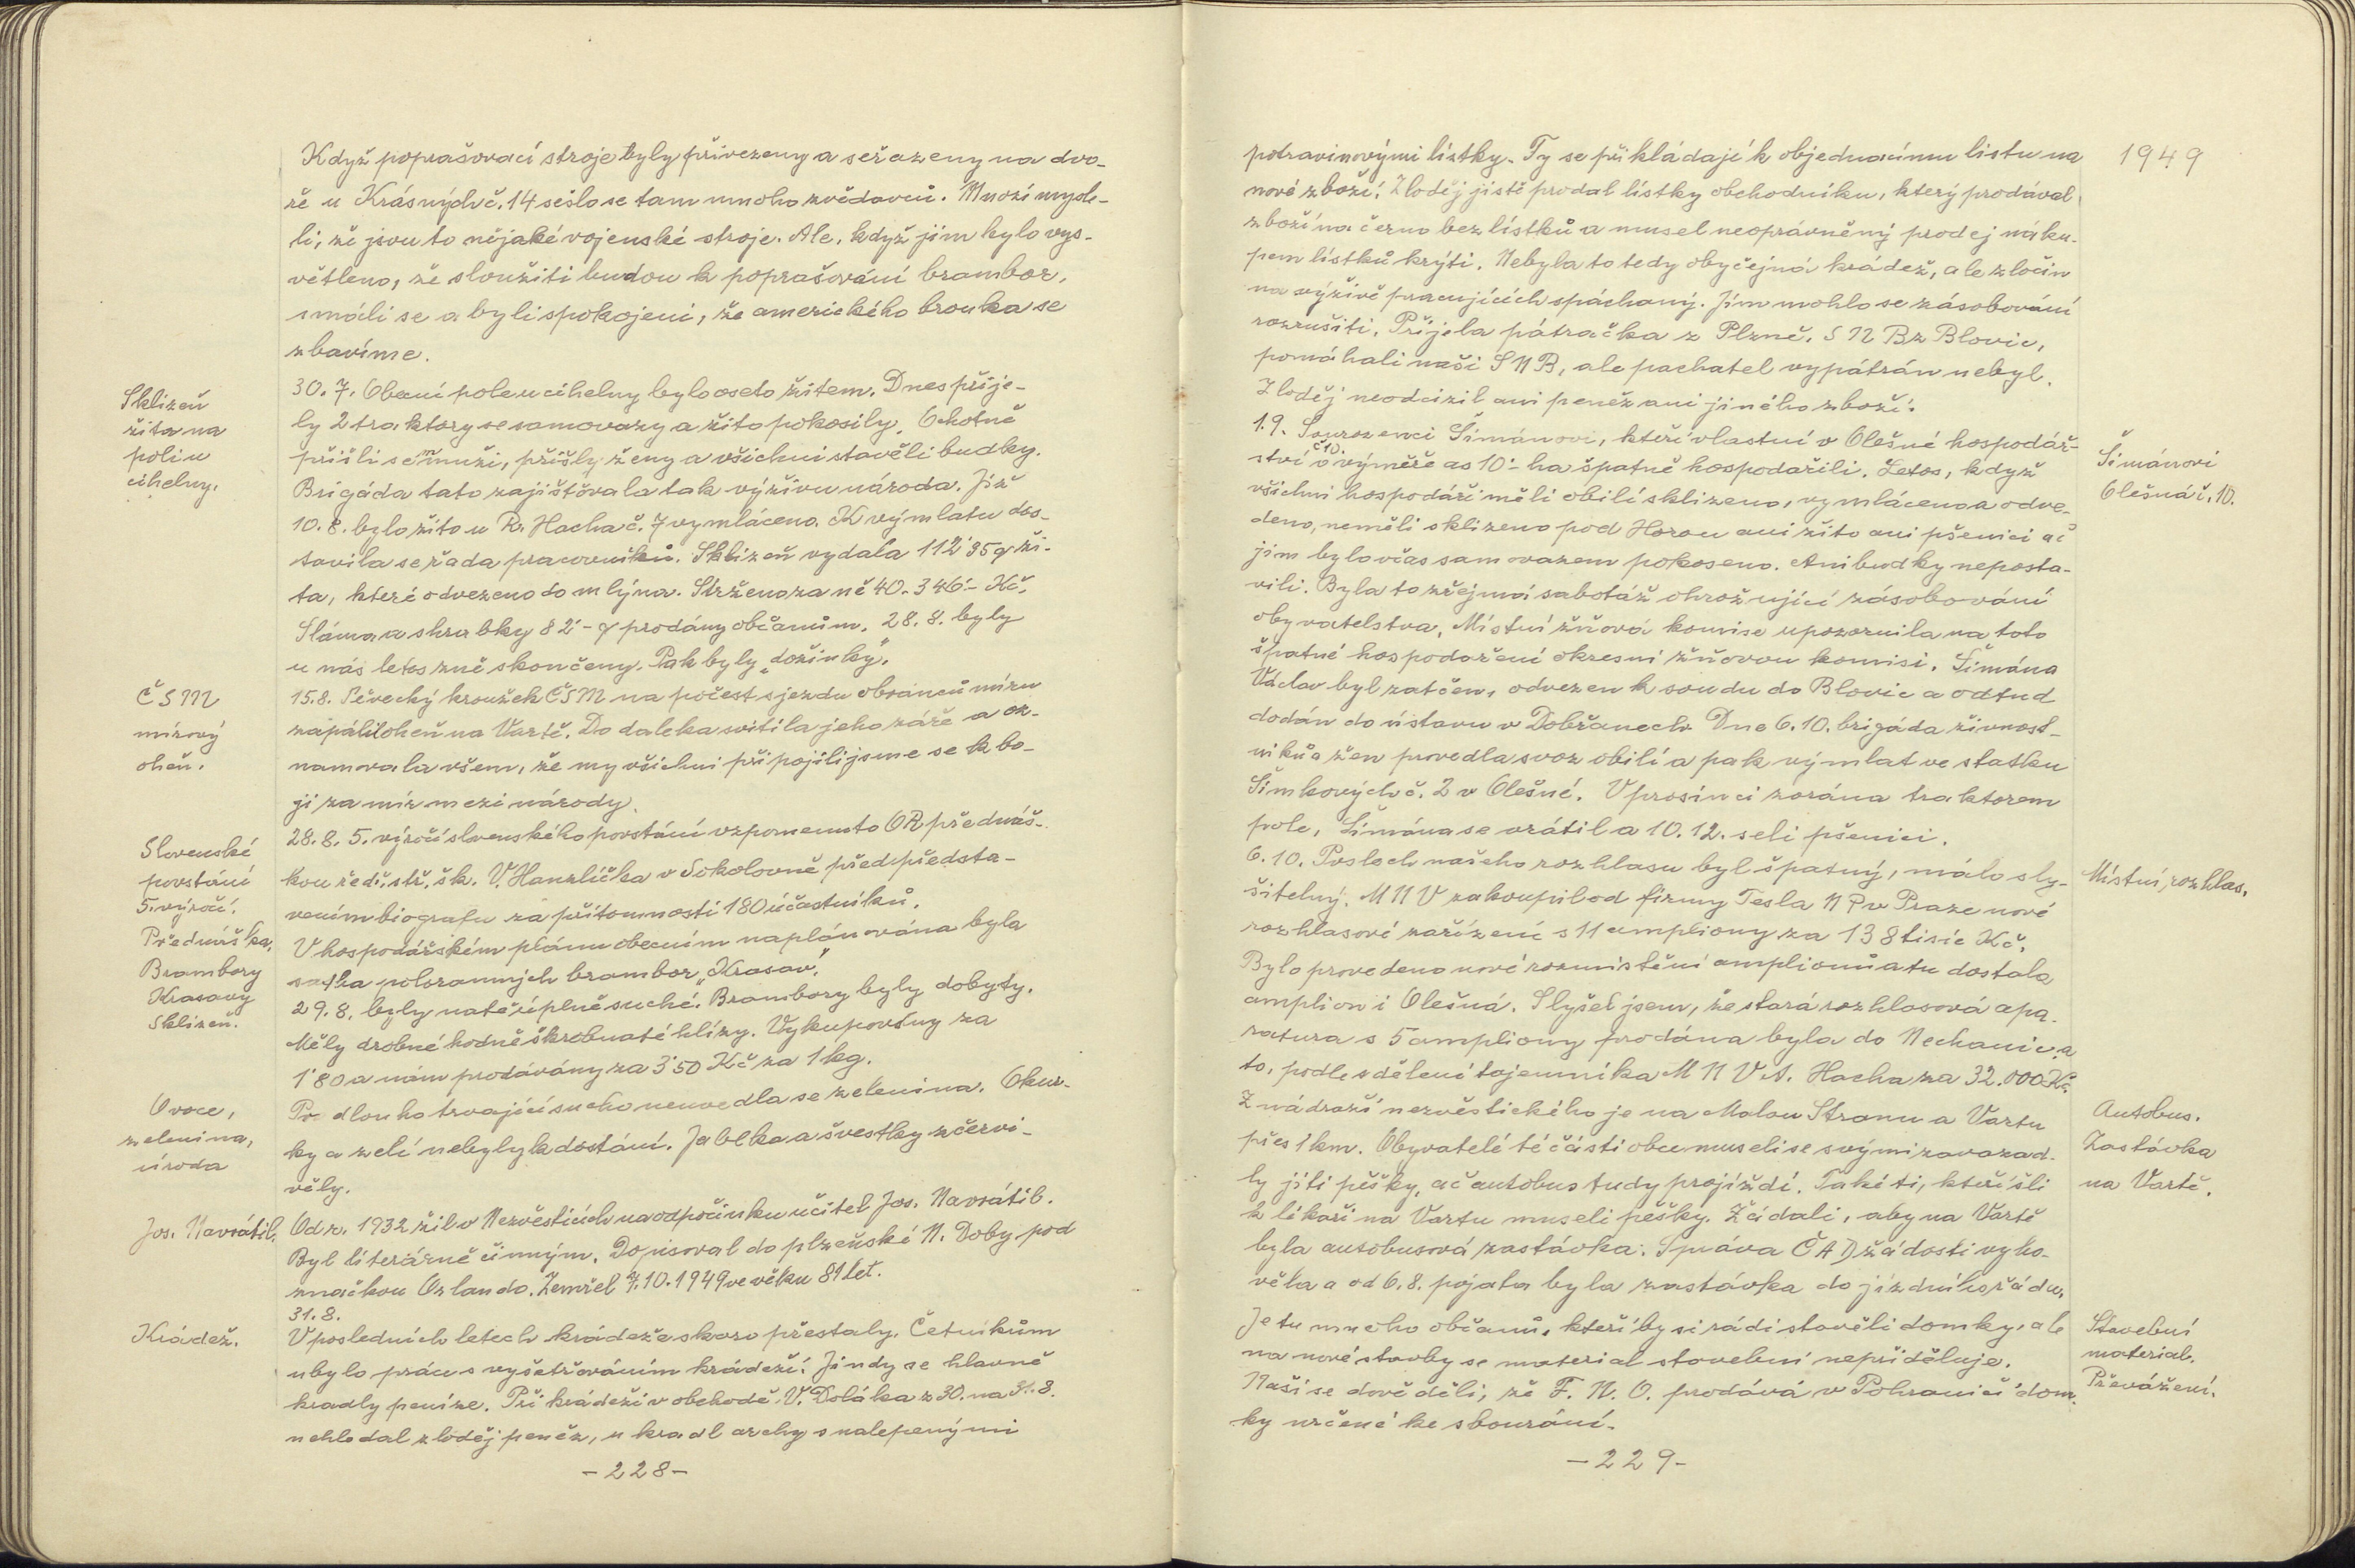 Když poprašovací stroje byly přivezeny a seřazeny na dvo-
ře u Krásných č. 14 sešlo se tam mnoho zvědavců. Mnozí mysle-
li, že jsou to nějaké vojenské stroje. Ale, když jim bylo vys-
větleno, že sloužiti budou k poprašování brambor,
smáli se a byli spokojeni, že amerického brouka se
zbavíme.
Sklizeň
žita na
poli u
cihelny.
30. 7. Obecní pole u cihelny bylo oseto žitem. Dnes přije-
ly 2 traktory se samovazy a žito pokosily. Ochotně
přišli sem muži, přišly ženy a všichni stavěli budky.
Brigáda tato zajišťovala tak výživu národa. Již
10. 8. bylo žito u R. Hacha č. 7 vymláceno. K výmlatu dos-
tavila se řada pracovníků. Sklizeň vydala 112˙35 q ži-
ta, které odvezeno do mlýna. Strženo za ně 40.346˙- Kč.
Sláma a shrabky 82˙- q prodány občanům. 28. 8. byly
u nás letos žně skončeny. Pak byly „dožinky".
ČSM
mírový
oheň.
15. 8. Pěvecký kroužek ČSM na počest sjezdu obránců míru
zapálil oheň na Vartě. Do daleka svítila jeho záře a oz-
namovala všem, že my všichni připojili jsme se k bo-
ji za mír mezi národy.
Slovenské
povstání
5. výročí.
Přednáška.
28. 8. 5. výročí slovenského povstání vzpomenuto OR přednáš-
kou řed. stř. šk. V. Hanzlíčka v Sokolovně před předsta-
vením biografu za přítomnosti 180 účastníků.
Brambory
Krasavy
Sklizeň.
V hospodářském plánu obecním naplánována byla
sadba poloranných brambor „Krasav".
29. 8. byly natě úplně suché. Brambory byly dobyty.
Měly drobné hodně škrobnaté hlízy. Vykupovány za
1˙80 a nám prodávány za 3˙50 Kč za 1 kg.
Ovoce,
zelenina,
úroda
Pro dlouho trvající sucho neuvedla se zelenina. Okur-
ky a zelí nebyly k dostání. Jablka a švestky zčervi-
věly.
Jos. Navrátil.
Od r. 1932 žil v Nezvěsticích na odpočinku učitel Jos. Navrátil.
Byl literárně činným. Dopisoval do plzeňské N. Doby pod
značkou Orlando. Zemřel 7. 10. 1949 ve věku 81 let.
31. 8.
Krádež.
V posledních letech krádeže skoro přestaly. Četníkům
ubylo práce s vyšetřováním krádeží. Jindy se hlavně
kradly peníze. Při krádeži v obchodě V. Doláka z 30. na 31. 8.
nehledal zloděj peněz, ukradl archy s nalepenými
-228-
1949
potravinovými lístky. Ty se přikládají k objednacímu listu na
nové zboží. Zloděj jistě prodal lístky obchodníku, který prodával
zboží na černo bez lístků a musel neoprávněný prodej náku-
pem lístků krýti. Nebyla to tedy obyčejná krádež, ale zločin
na výživě pracujících spáchaný. Jím mohlo se zásobování
rozrušiti. Přijela pátračka z Plzně. SNB z Blovic,
pomáhali naši SNB, ale pachatel vypátrán nebyl.
Zloděj neodcizil ani peněz ani jiného zboží.
Šimánovi
Olešná č. 10.
1. 9. Sourozenci Šimánovi, kteří vlastní v Olešné hospodář-
ství č 10. o výměře as 10˙- ha špatně hospodařili. Letos, když
všichni hospodáři měli obilí sklizeno, vymláceno a odve-
deno, neměli sklizeno pod Horou ani žito ani pšenici ač
jim bylo včas samovazem pokoseno. Ani budky neposta-
vili. Byla to zřejmá sabotáž ohrožující zásobování
obyvatelstva. Místní žňová komise upozornila na toto
špatné hospodaření okresní žňovou komisi. Šimána
Václav byl zatčen, odvezen k soudu do Blovic a odtud
dodán do ústavu v Dobřanech. Dne 6. 10. brigáda živnost-
níků a žen provedla svoz obilí a pak výmlat ve statku
Šimkových č. 2 v Olešné. V prosinci zorána traktorem
pole, Šimána se vrátil a 10. 12. seli pšenici.
Místní rozhlas.
6. 10. Poslech našeho rozhlasu byl špatný, málo sly-
šitelný. MNV zakoupil od firmy Tesla NP v Praze nové
rozhlasové zařízení s 11 ampliony za 138 tisíc Kč.
Bylo provedeno nové rozmístění amplionů a tu dostala
amplion i Olešná. Slyšel jsem, že stará rozhlasová apa-
ratura s 5 ampliony prodána byla do Nechanic a
to, podle sdělení tajemníka MNV A. Hacha za 32.000 Kč.
Autobus.
Zastávka
na Vartě.
Z nádraží nezvěstického je na Malou Stranu a Vartu
přes 1 km. Obyvatelé té části obce museli se svými zavazad-
ly jíti pěšky, ač autobus tudy projíždí. Také ti, kteří šli
k lékaři na Vartu museli pěšky. Žádali, aby na Vartě
byla autobusová zastávka. Správa ČAD žádosti vyho-
věla a od 6. 8. pojata byla zastávka do jízdního řádu.
Stavební
material.
Převážení.
Je tu mnoho občanů, kteří by si rádi stavěli domky, ale
na nové stavby se material stavební nepřiděluje.
Naši se dověděli, že F. N. O. prodává v Pohraničí dom-
ky určené ke sbourání.
-229-